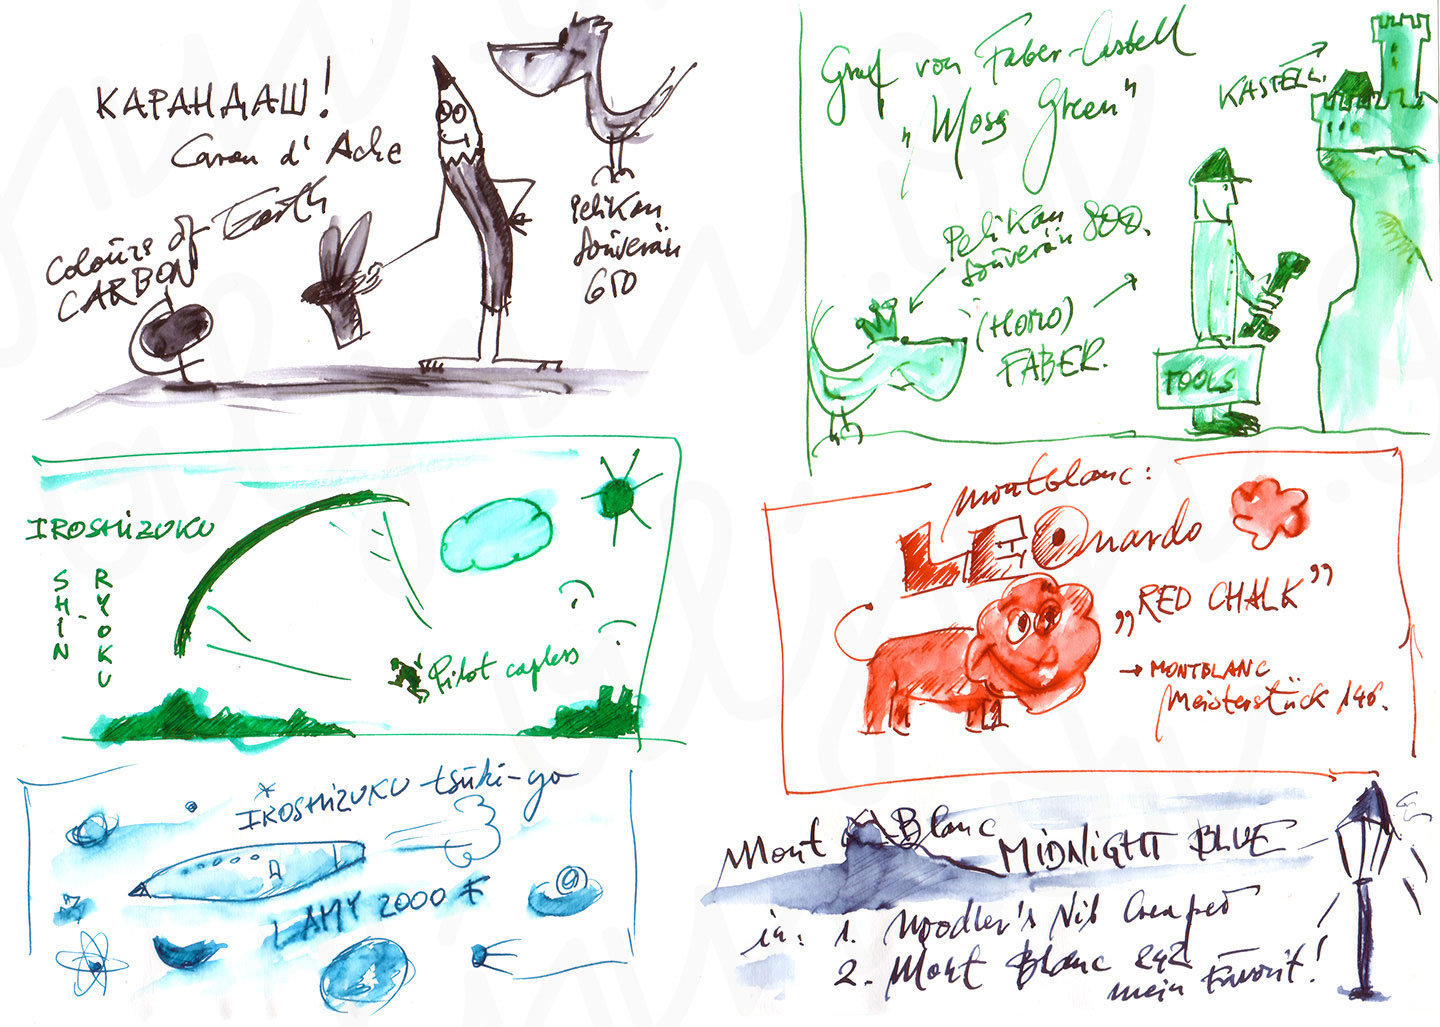 КАРАНДАШ!
Caran d' Ache
Colours of Earth
CARBON
Pelikan
Souverän
650
Graf von Faber-Castell
„Moss Green“
KASTELL.
Pelikan
Souverän 800.
(HOMO)
FABER.
TOOLS
IROSHIZUKU
SHIN-
RYOKU
Pilot capless
Montblanc:
LEOnardo
„RED CHALK”
→ MONTBLANC
Meisterstück 146.
IROSHIZUKU tsuki-yo
LAMY 2000 F
Mont Blanc
MIDNIGHT BLUE
in: 1. Noodler's Nib Creaper
2. Mont Blanc 242
mein Favorit!